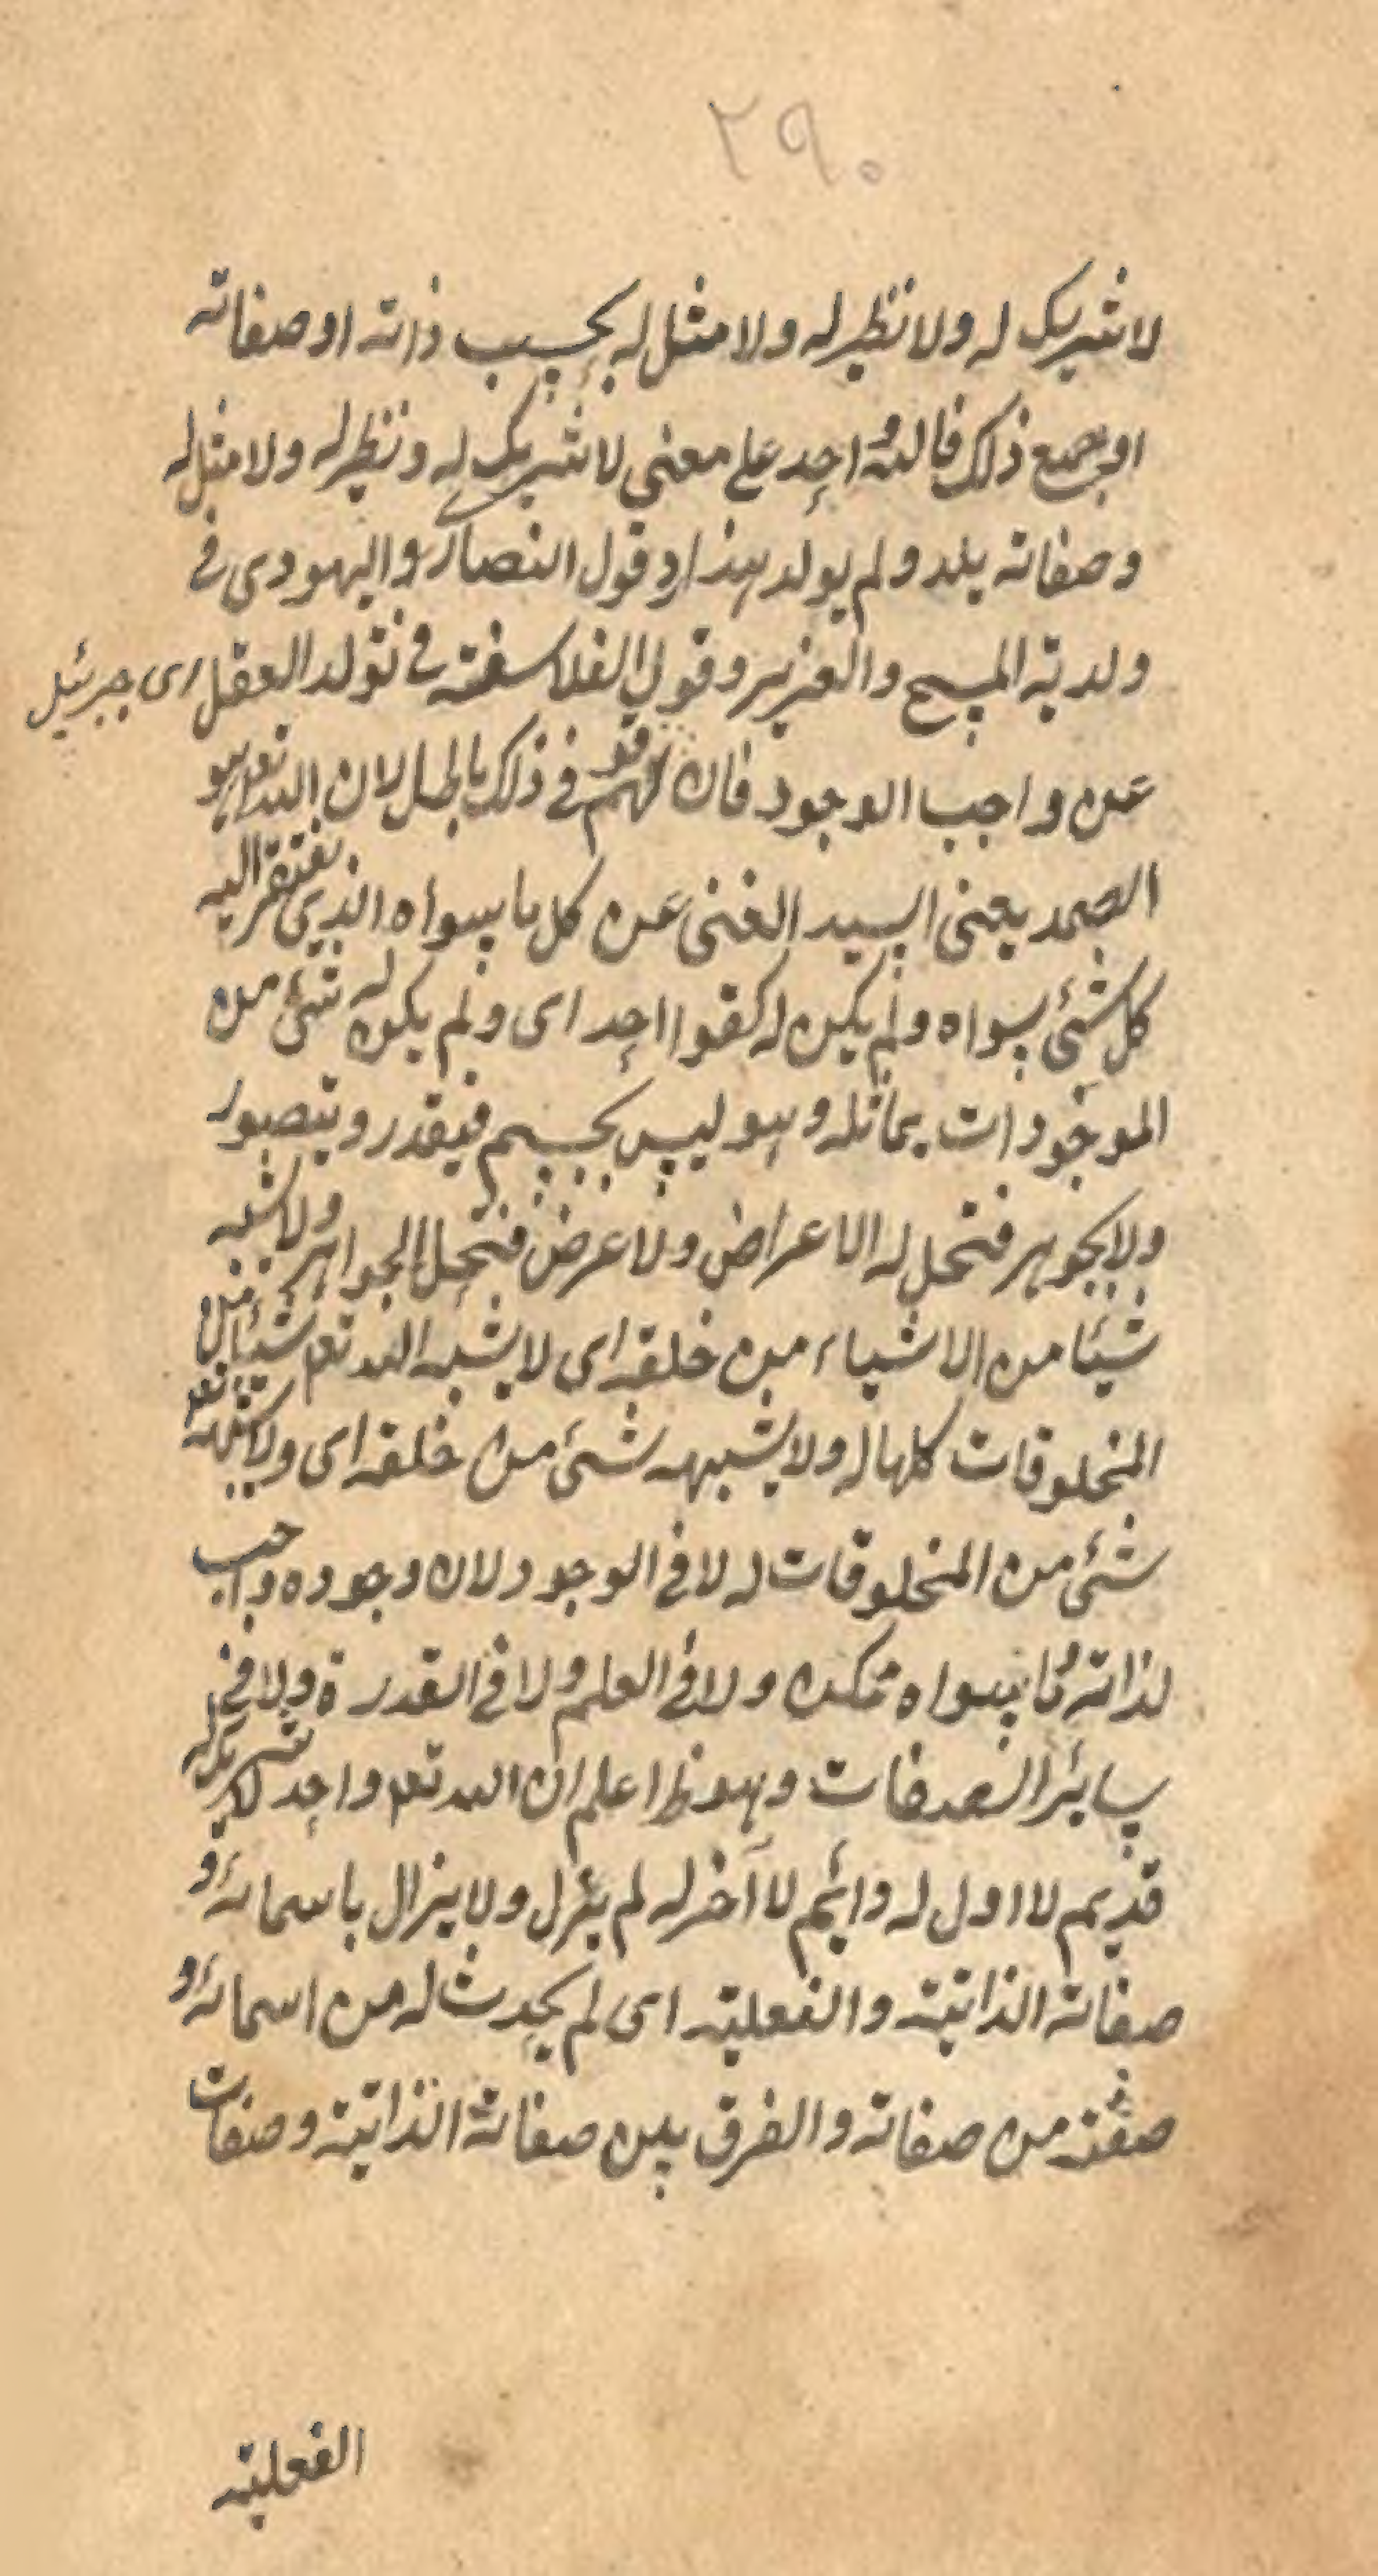 ٢٩٠
لا شريك له ولا نظير له ولا مثل له بحسب ذاته او صفاته
او جميع ذلك فالله واحد على معنى لا شريك له ونظير له ولا مثل له
وصفاته يلد ولم يولد هذا رد قول النصارى واليهودى فى
ولدية المسيح والعزير وقول الفلاسفة فى تولد العقل اى جبرئيل
عن واجب الوجود فان قولهم فى ذلك باطل لان الله تعم هو
الصمد يعنى السيد الغنى عن كل ما سواه الذى يفتقر اليه
كل شئ سواه ولم يكن له كفوا احد اى ولم يكن له شئ من
الموجودات يماثله وهو ليس بجسم فيقدر ويتصور
ولا بجوهر فتحل له الاعراض ولا عرض فتحل الجواهر ولا يشبه
شيئا من الاشياء من خلقه اى لا يشبه الله تعم شيئا من
المخلوقات كلها له ولا يشبهه شئ من خلقه اى ولا يماثله تعم
شئ من المخلوقات له لا فى الوجود لان وجوده واجب
لذاته وما سواه ممكن ولا فى العلم ولا فى القدرة ولا فى
سائر الصفات وهو ظ اعلم ان الله تعم واحد لا شريك له
قديم لا اول له دائم لا آخر له لم يزل ولا يزال باسمائه و
صفاته الذاتية والفعلية اى لم يحدث له من اسمائه و
صفة من صفاته والفرق بين صفاته الذاتية وصفات
الفعلية